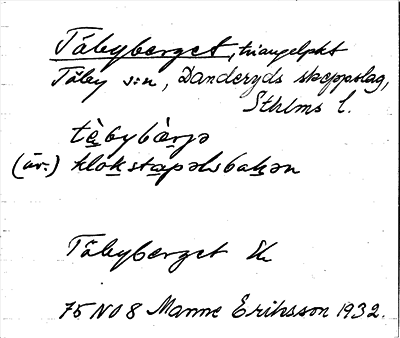 Täbyberget, triangelpkt
Täby s:n, Danderyds skeppslag,
Sthlms l.
tè̱bybæ̱rjə
(äv.) kloḵsta̱pəlsbaḵən
Täbyberget Ek
75 NO 8 Manne Eriksson 1932.